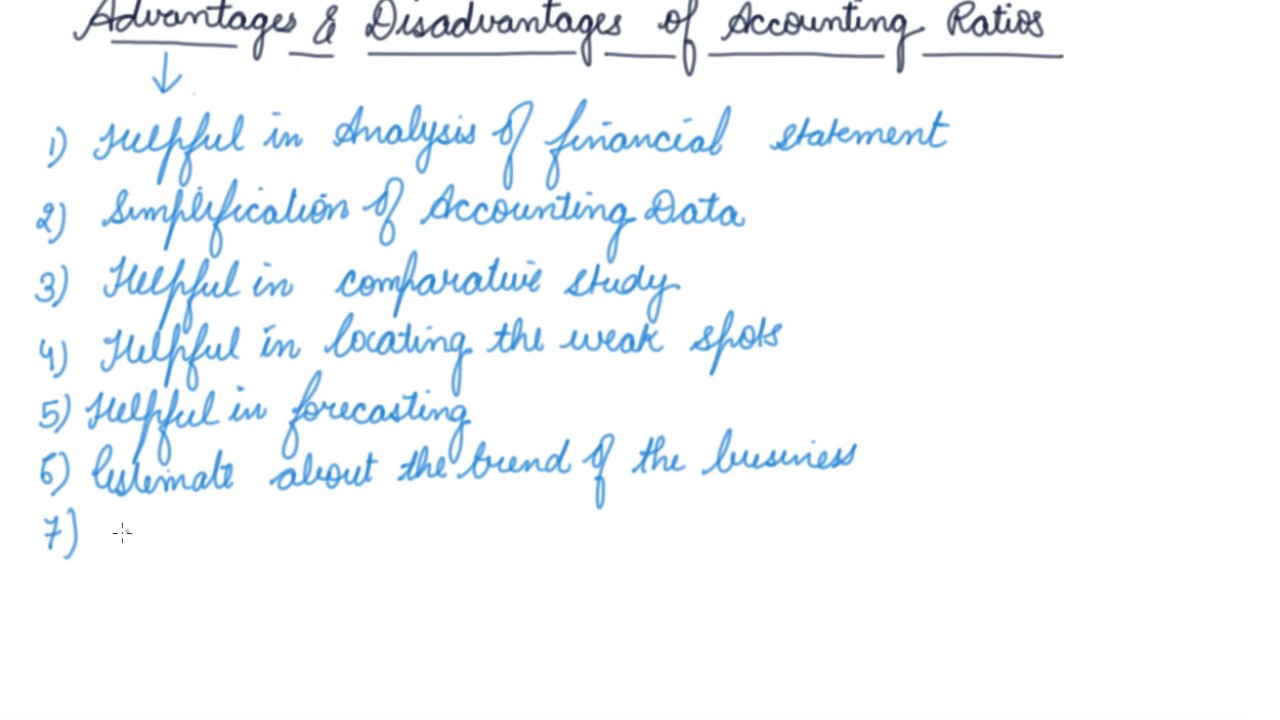 Advantages & Disadvantages of Accounting Ratios
1) Helpful in Analysis of financial statement
2) Simplification of Accounting Data
3) Helpful in comparative study
4) Helpful in locating the weak spots
5) Helpful in forecasting
6) Estimate about the trend of the business
7)